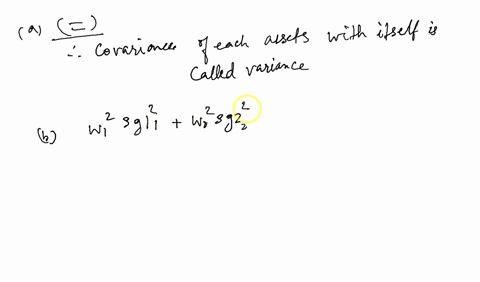 (a) (=)
∴ Covariances of each assets with itself is
called variance
(b) w₁² sg1₁² + w₂² sg2₂²